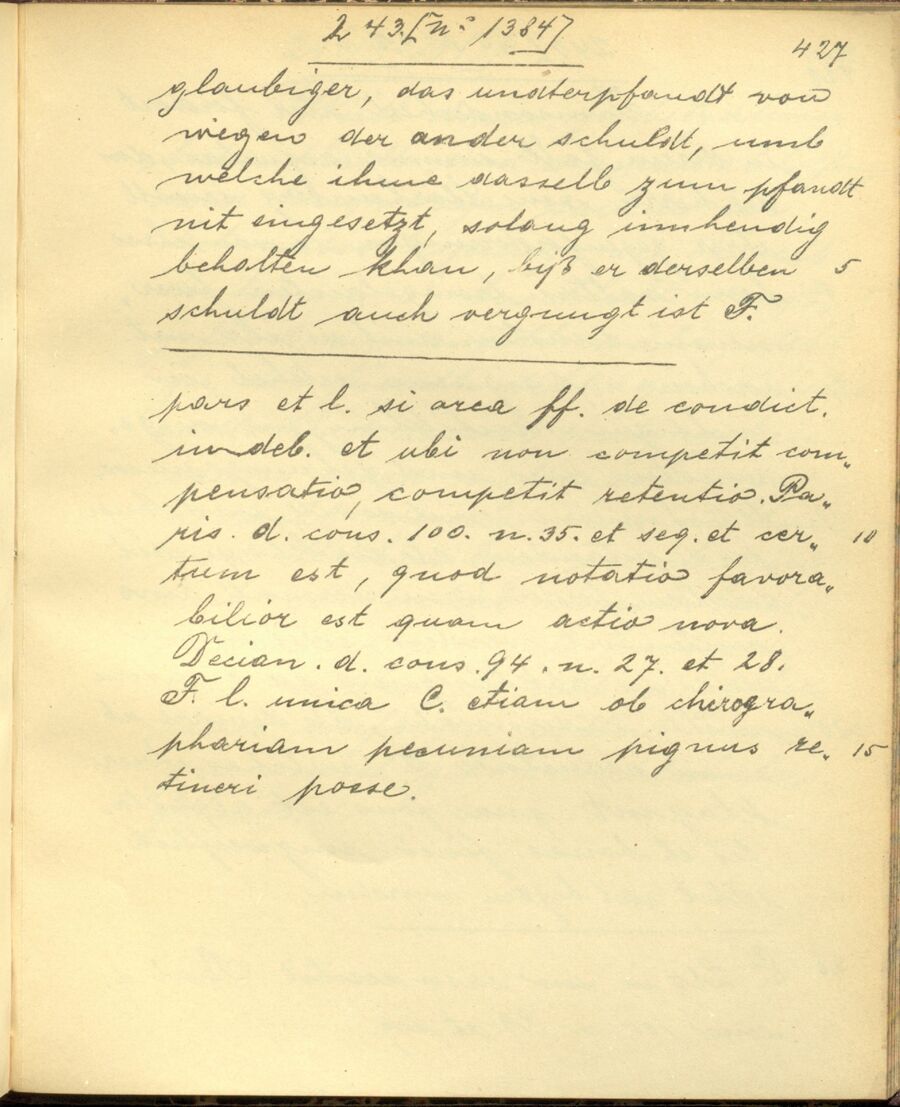 2 43. [nº 1384]
427
glaubiger, das undterpfandt von
wegen der ander schuldt, umb
welche ihme dasselb zum pfandt
nit eingesetzt, solang innhendig
behalten khan, biß er derselben 5
schuldt auch vergnungt ist F.
pars et l. si area ff. de condict.
indeb. et ubi non competit com„
pensatio, competit retentio. Pa„
ris. d. cons. 100. n. 35. et seq. et cer„ 10
tum est, quod notatio favora„
bilior est quam actio nova.
Decian. d. cons. 94. n. 27. et 28.
F. l. unica C. etiam ob chirogra„
phariam pecuniam pignus re„ 15
tineri posse.